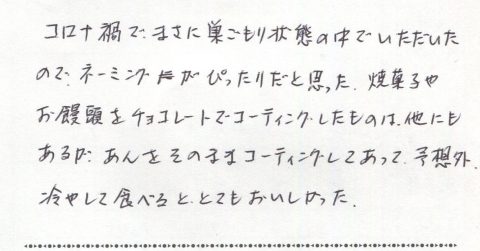 コロナ禍で、まさに巣ごもり状態の中でいただいた
ので、ネーミングがぴったりだと思った。焼菓子や
お饅頭をチョコレートでコーティングしたものは、他にも
あるが、あんをそのままコーティングしてあって、予想外。
冷やして食べると、とてもおいしかった。